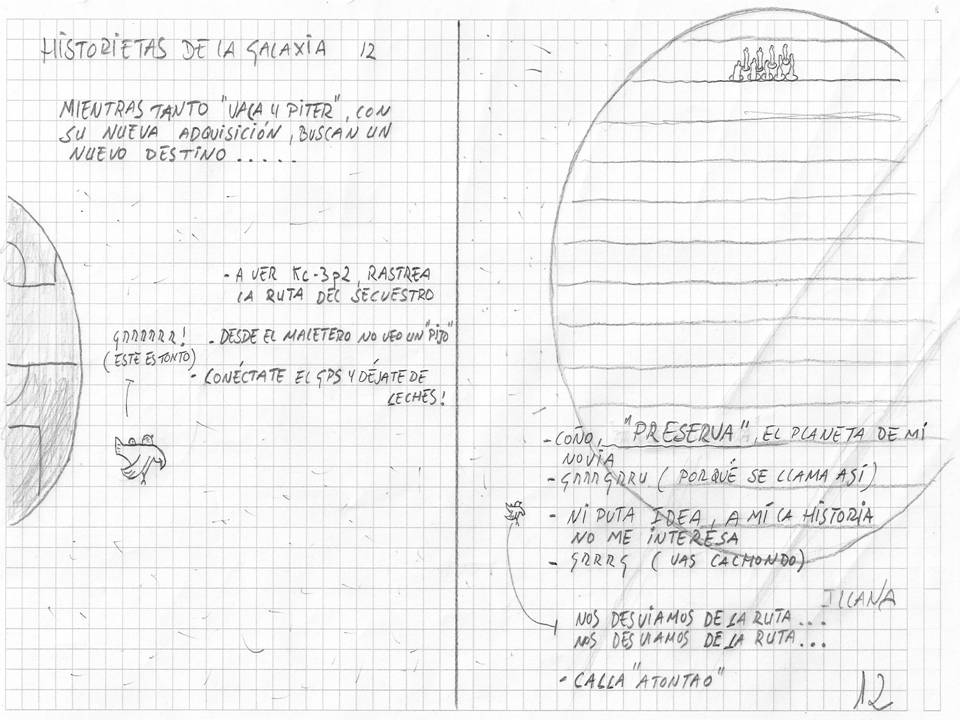 HISTORIETAS DE LA GALAXIA 12
MIENTRAS TANTO "VACA Y PITER", CON
SU NUEVA ADQUISICIÓN, BUSCAN UN
NUEVO DESTINO.....
- A VER KC-3P2, RASTREA
LA RUTA DEL SECUESTRO
GRRRRRR!
(ESTE ES TONTO)
- DESDE EL MALETERO NO VEO UN "PIJO"
- CONÉCTATE EL GPS Y DÉJATE DE
LECHES!
- COÑO, "PRESERVA", EL PLANETA DE MI
NOVIA
- GRRRGRRU (PORQUÉ SE LLAMA ASÍ)
- NI PUTA IDEA, A MÍ LA HISTORIA
NO ME INTERESA
- GRRRG (VAS CACHONDO)
ILLANA
NOS DESVIAMOS DE LA RUTA...
NOS DESVIAMOS DE LA RUTA...
- CALLA "ATONTAO"
12